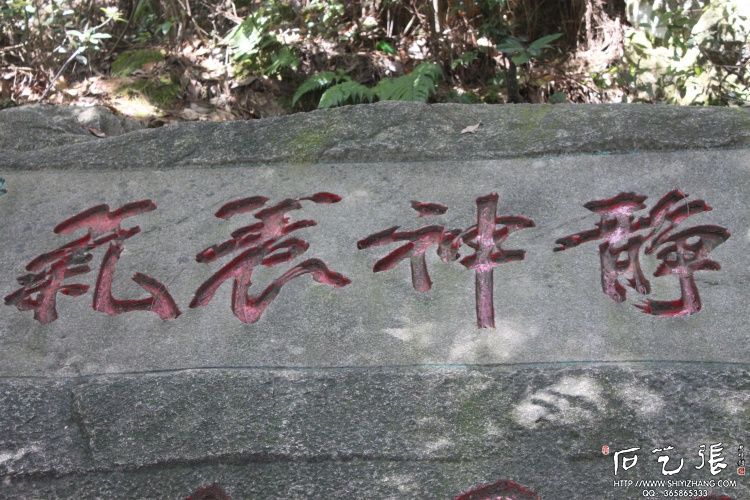 静神养氣
張艺石
HTTP://WWW.SHIYIZHANG.COM
QQ: 365865333